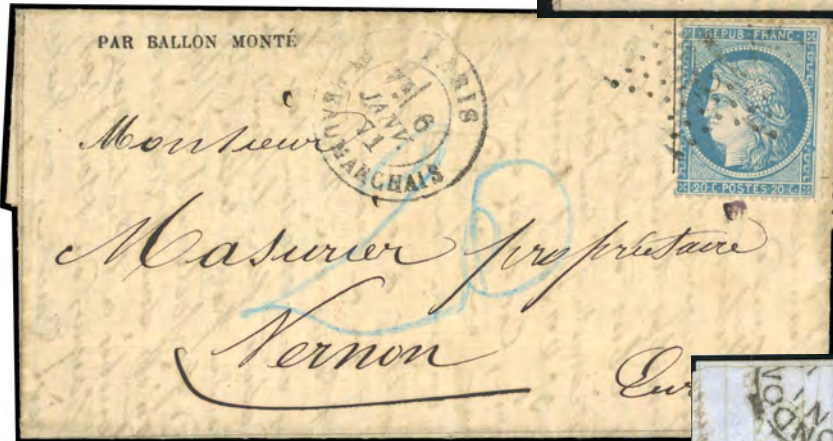 PAR BALLON MONTÉ
PARIS
6
JANV.
71
BEAUMARCHAIS
REPUB·FRANC·
20·C·POSTES·20·C·
Monsieur
20
Masurier propriétaire
Vernon
Eur